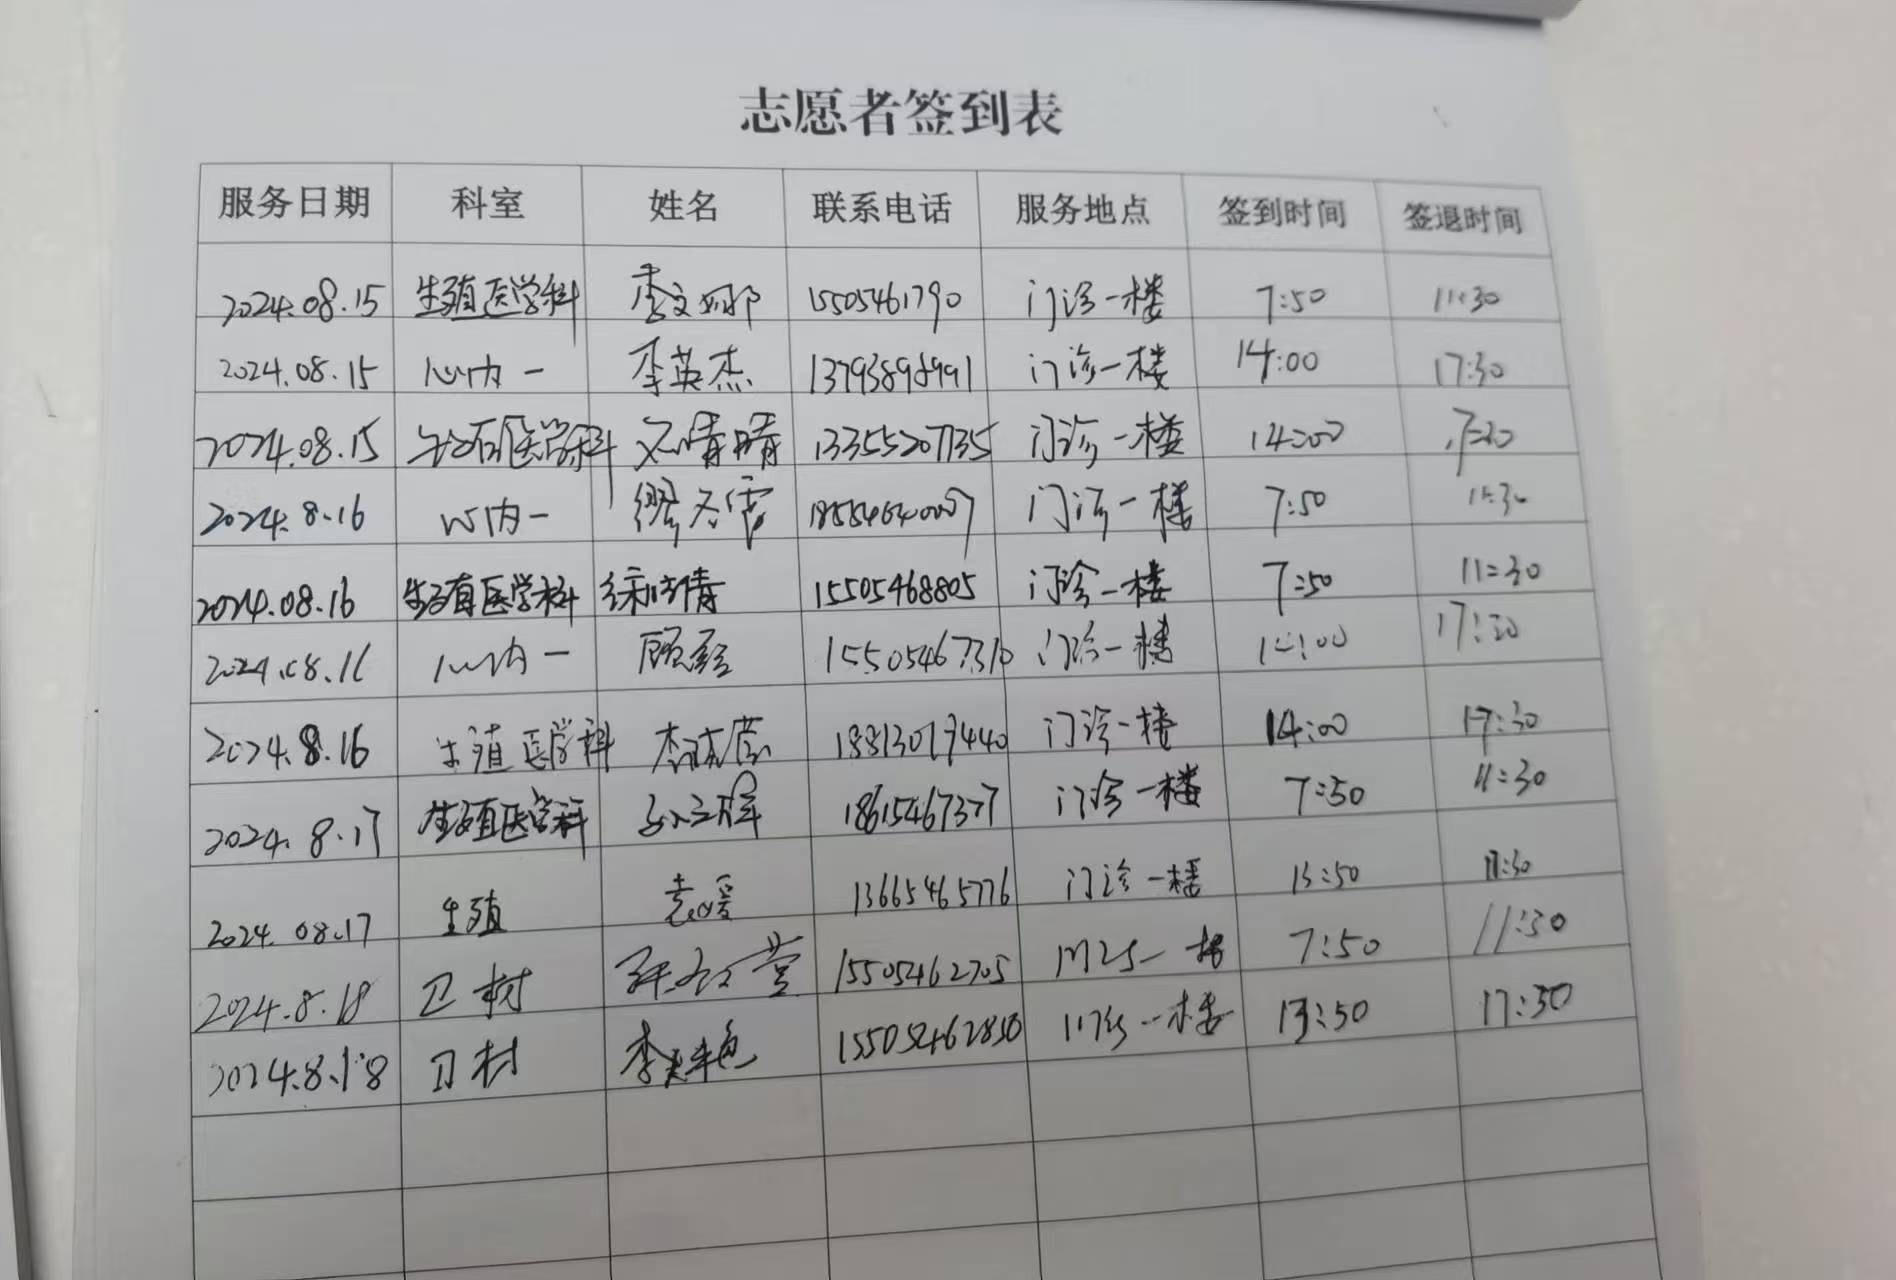 志愿者签到表
服务日期 科室 姓名 联系电话 服务地点 签到时间 签退时间
2024.08.15 生殖医学科 李文娜 15505461790 门诊一楼 7:50 11:30
2024.08.15 心内一 李英杰 门诊一楼 14:00 17:30
2024.08.15 生殖医学科 13355207135 门诊一楼 14:00 17:30
2024.8.16 心内一 门诊一楼 7:50 11:30
2024.08.16 生殖医学科 15505468805 门诊一楼 7:50 11:30
2024.08.16 心内一 15505467310 门诊一楼 14:00 17:30
2024.8.16 生殖医学科 门诊一楼 14:00 17:30
2024.8.17 生殖医学科 18615467377 门诊一楼 7:50 11:30
2024.08.17 生殖 袁媛 13665465776 门诊一楼 13:50
2024.8.18 卫材 15505462705 门诊一楼 7:50 11:30
2024.8.18 卫材 门诊一楼 13:50 17:30